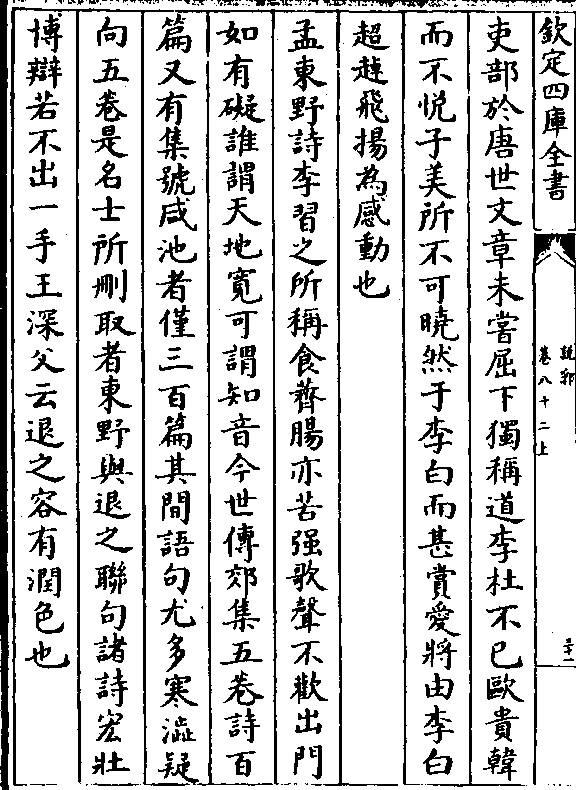 欽定四庫全書
說郛
卷八十二上
三十一
吏部於唐世文章未嘗屈下獨稱道李杜不已歐貴韓
而不悅子美所不可曉然于李白而甚賞愛將由李白
超趠飛揚為感動也
孟東野詩李習之所稱食薺腸亦苦强歌聲不歡出門
如有礙誰謂天地寛可謂知音今世傳郊集五卷詩百
篇又有集號咸池者僅三百篇其間語句尤多寒澁疑
向五卷是名士所刪取者東野與退之聯句諸詩宏壯
博辯若不出一手王深父云退之容有潤色也